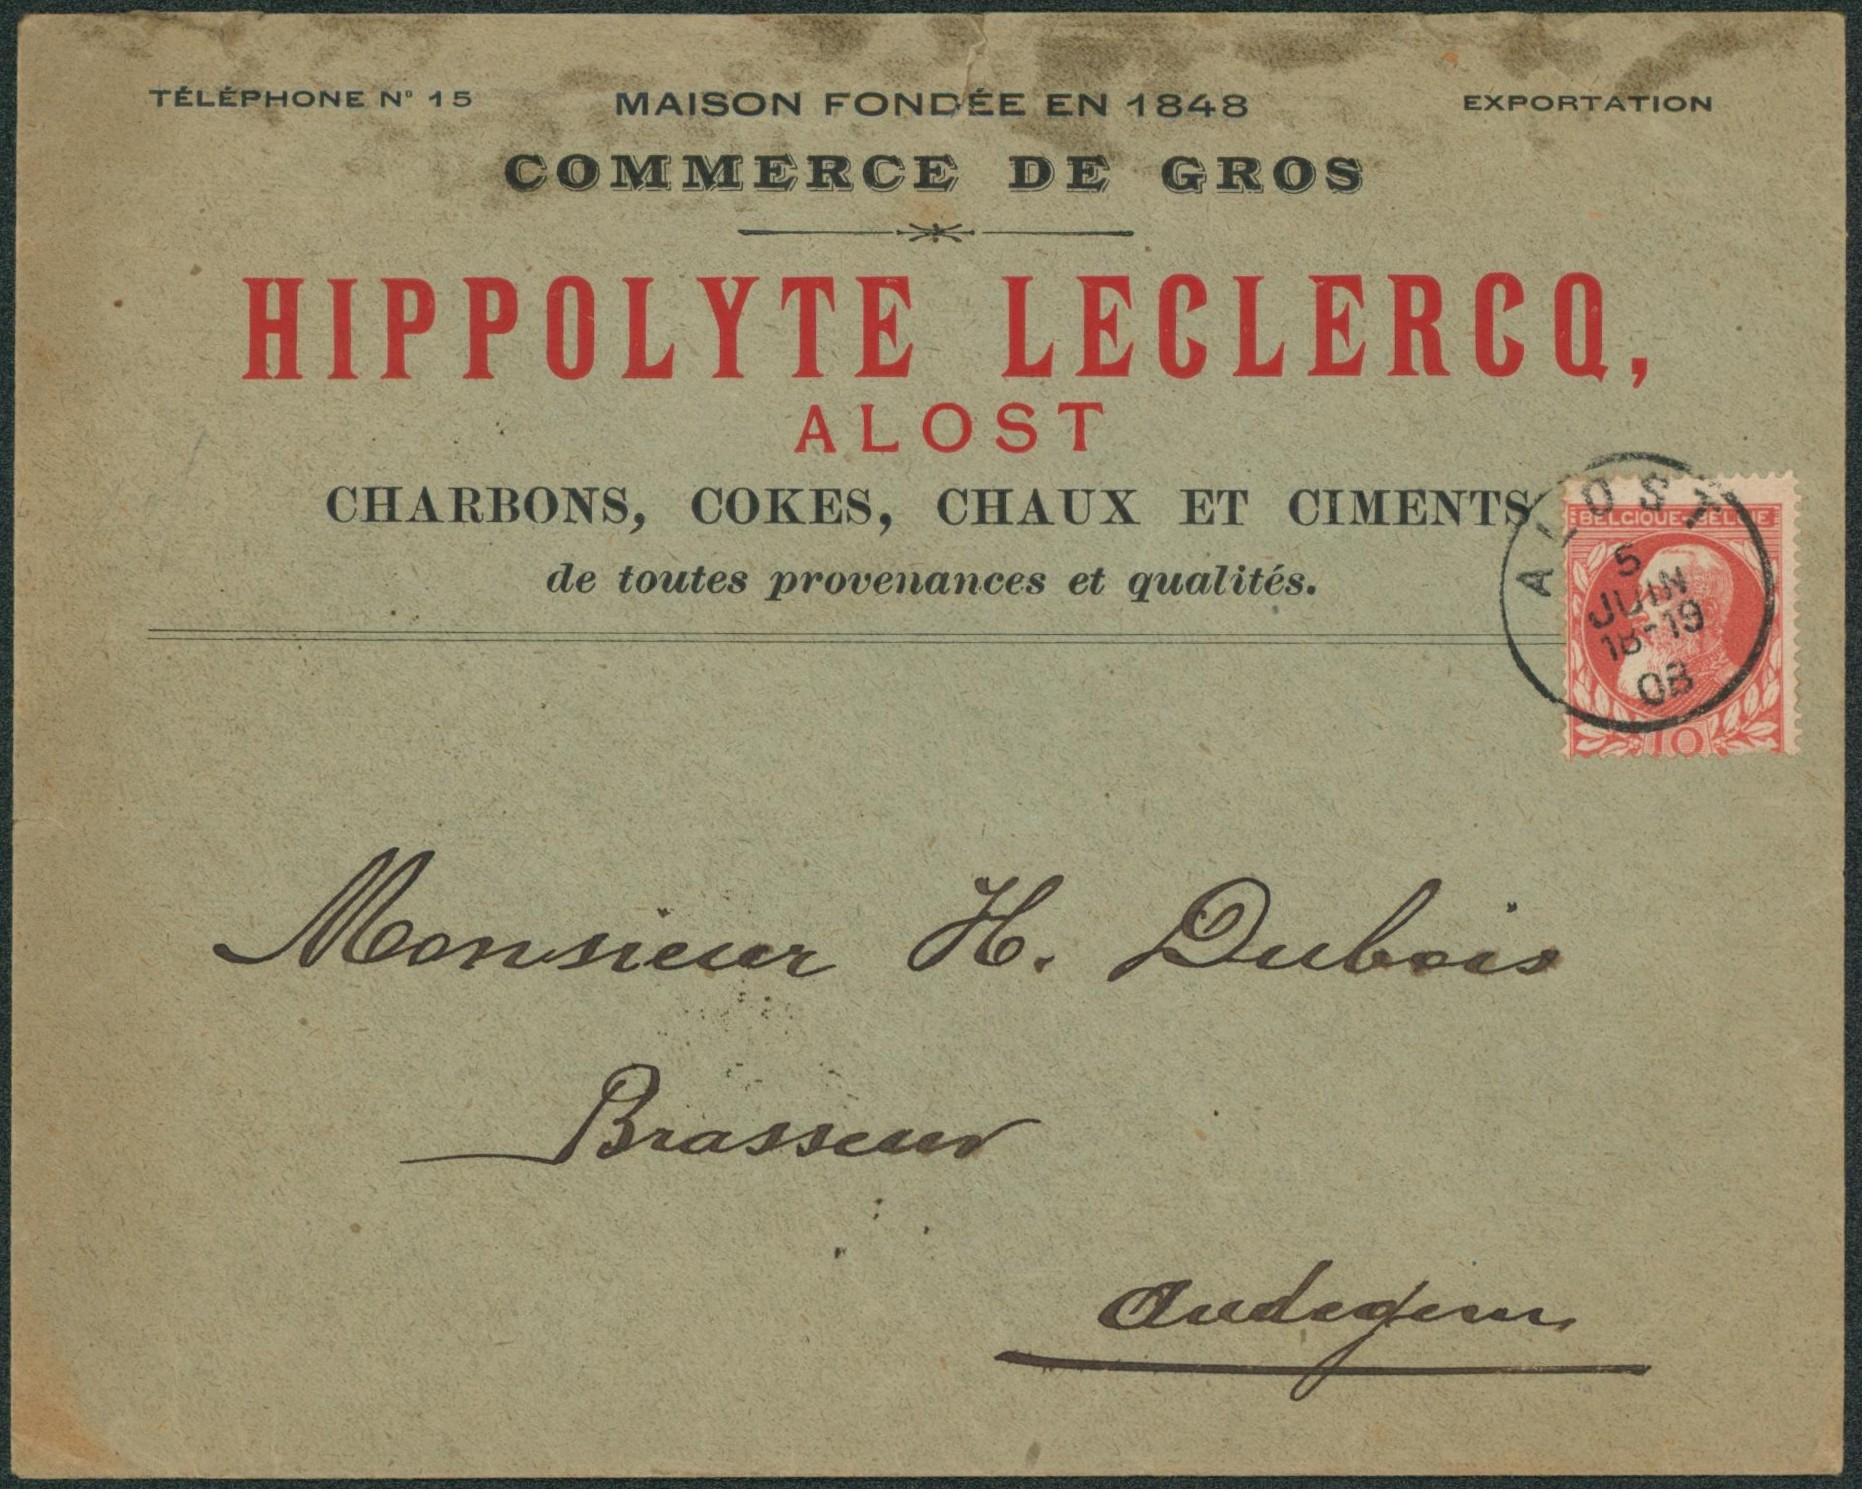 TÉLÉPHONE N° 15
MAISON FONDÉE EN 1848
EXPORTATION
COMMERCE DE GROS
HIPPOLYTE LECLERCQ,
ALOST
CHARBONS, COKES, CHAUX ET CIMENTS
de toutes provenances et qualités.
BELGIQUE-BELGIE
ALOST
5
JUIN
18-19
08
10
Monsieur H. Dubois
Brasseur
Audegem